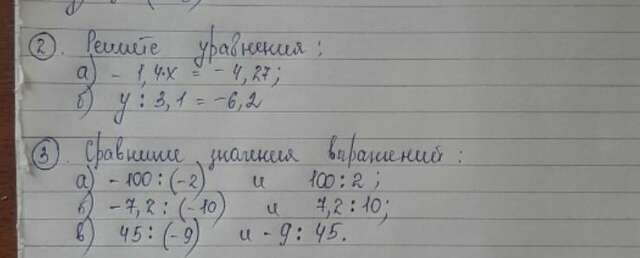 ② . Решите уравнения :
а) - 1,4·х = - 4,27 ;
б) у : 3,1 = -6,2
③ . Сравните значения выражений :
а) -100 : (-2) и 100 : 2 ;
б) -7,2 : (-10) и 7,2 : 10;
в) 45 : (-9) и - 9 : 45.